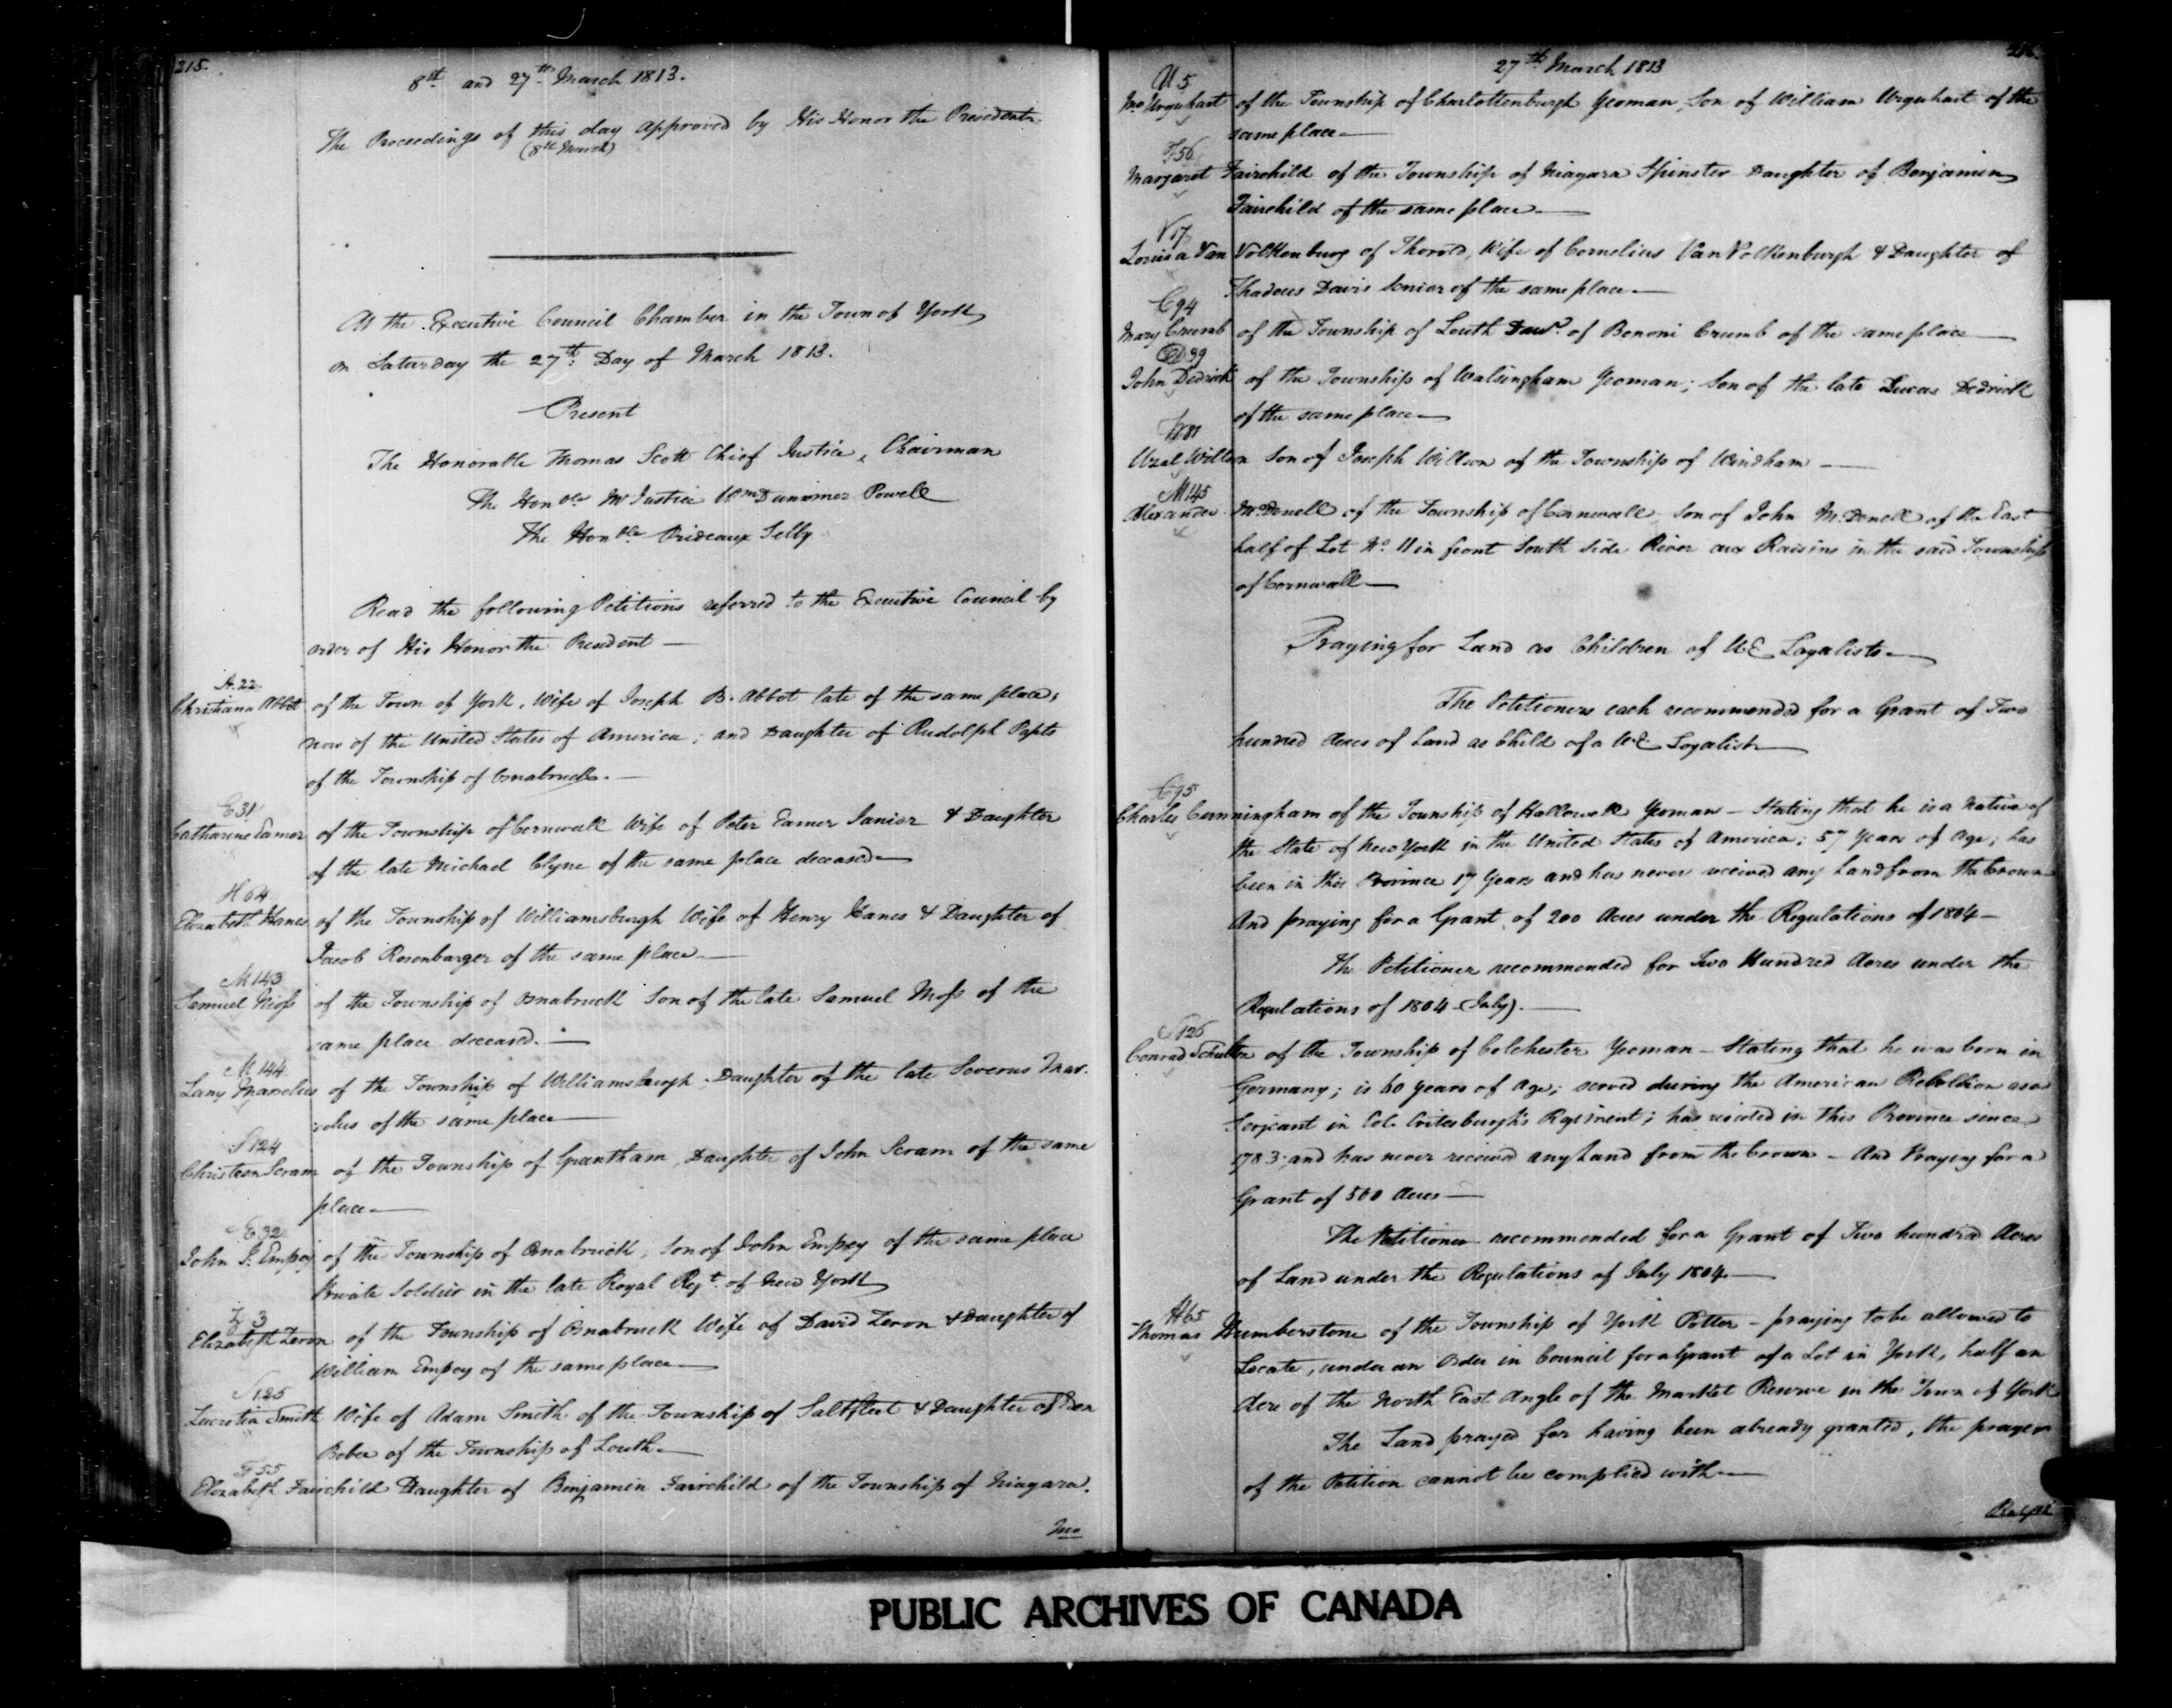 215.
8th and 27th March 1813.
The Proceedings of this day approved by His Honor the President.
(8th March)
At the Executive Council Chamber in the Town of York
on Saturday the 27th: Day of March 1813.
Present
The Honorable Thomas Scott Chief Justice, Chairman
The Honble Mr Justice Wm Dummer Powell
The Honble Prideaux Selby
Read the following Petitions referred to the Executive Council by
order of His Honor the President —
A. 22
Christiana Abbot of the Town of York, Wife of Joseph B. Abbot late of the same place,
now of the United States of America; and Daughter of Rudolph Papts
of the Township of Osnabruck. —
E 31
Catharine Eamer of the Township of Cornwall Wife of Peter Eamer Junior & Daughter
of the late Michael Clyne of the same place deceased —
H 64
Elizabeth Hanes of the Township of Williamsburgh Wife of Henry Hanes & Daughter of
Jacob Rosenbarger of the same place —
M 143
Samuel Moss of the Township of Osnabruck Son of the late Samuel Moss of the
same place deceased. —
M 144
Lany Marcelius of the Township of Williamsburgh Daughter of the late Severus Mar-
celus of the same place —
S 124
Christeen Scram of the Township of Grantham, Daughter of John Scram of the same
place —
E 32
John J. Empey of the Township of Osnabruck, Son of John Empey of the same place
Private Soldier in the late Royal Regt. of New York
Z 3
Elizabeth Zeron of the Township of Osnabruck Wife of David Zeron & Daughter of
William Empey of the same place —
S 125
Lucretia Smith Wife of Adam Smith of the Township of Saltfleet & Daughter of
Bebee of the Township of Louth —
F 55
Elizabeth Fairchild Daughter of Benjamin Fairchild of the Township of Niagara.
Mo
27th March 1813
U 5
Mo Urquhart of the Township of Charlottenburgh Yeoman, Son of William Urquhart of the
same place —
F 56
Margaret Fairchild of the Township of Niagara Spinster Daughter of Benjamin
Fairchild of the same place —
V 17
Louisa Van Volkenburg of Thorold, Wife of Cornelius Van Volkenburgh & Daughter of
Thadeus Davis Senior of the same place —
C 94
Mary Crumb of the Township of Louth Daur. of Benoni Crumb of the same place —
D 39
John Dedrick of the Township of Walsingham Yeoman; Son of the late Lucas Dedrick
of the same place —
W 81
Uzal Willson Son of Joseph Willson of the Township of Windham —
M 145
Alexander McDonell of the Township of Cornwall, Son of John McDonell of the East
half of Lot No. 11 in front South Side River aux Raisins in the said Township
of Cornwall —
Praying for Land as Children of U.E. Loyalists —
The Petitioners each recommended for a Grant of Two
hundred Acres of Land as Child of a U.E. Loyalist —
C 95
Charles Cunningham of the Township of Hallowell Yeoman — Stating that he is a Native of
the State of New York in the United States of America; 57 Years of Age; has
been in this Province 17 Years and has never received any Land from the Crown
And praying for a Grant of 200 Acres under the Regulations of 1804 —
The Petitioner recommended for Two Hundred Acres under the
Regulations of 1804 (July). —
S 126
Conrad Schultze of the Township of Colchester Yeoman — Stating that he was born in
Germany; is 60 years of Age; served during the American Rebellion as a
Serjeant in Col. Regiment; has resided in this Province since
1783; and has never received any Land from the Crown — And Praying for a
Grant of 500 Acres —
The Petitioner recommended for a Grant of Two hundred Acres
of Land under the Regulations of July 1804 —
H 65
Thomas Humberstone of the Township of York Potter — praying to be allowed to
Locate, under an Order in Council for a Grant of a Lot in York, half an
Acre of the North East Angle of the Market Reserve in the Town of York
The Land prayed for having been already granted, the prayer
of the Petition cannot be complied with —
Ralph
PUBLIC ARCHIVES OF CANADA